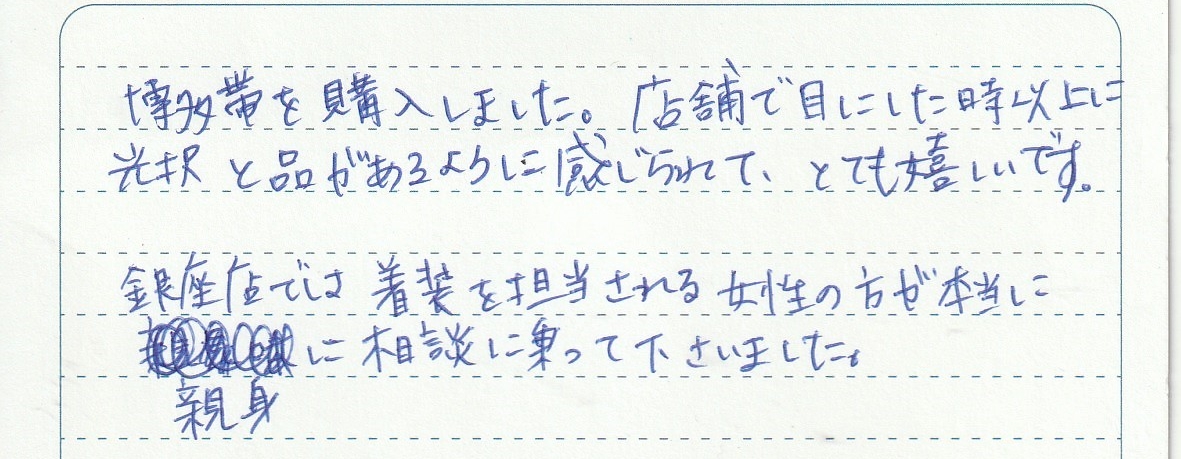 博多帯を購入しました。店舗で目にした時以上に
光択と品があるように感じられて、とても嬉しいです。
銀座店では着装を担当される女性の方が本当に
に相談に乗って下さいました。
親身